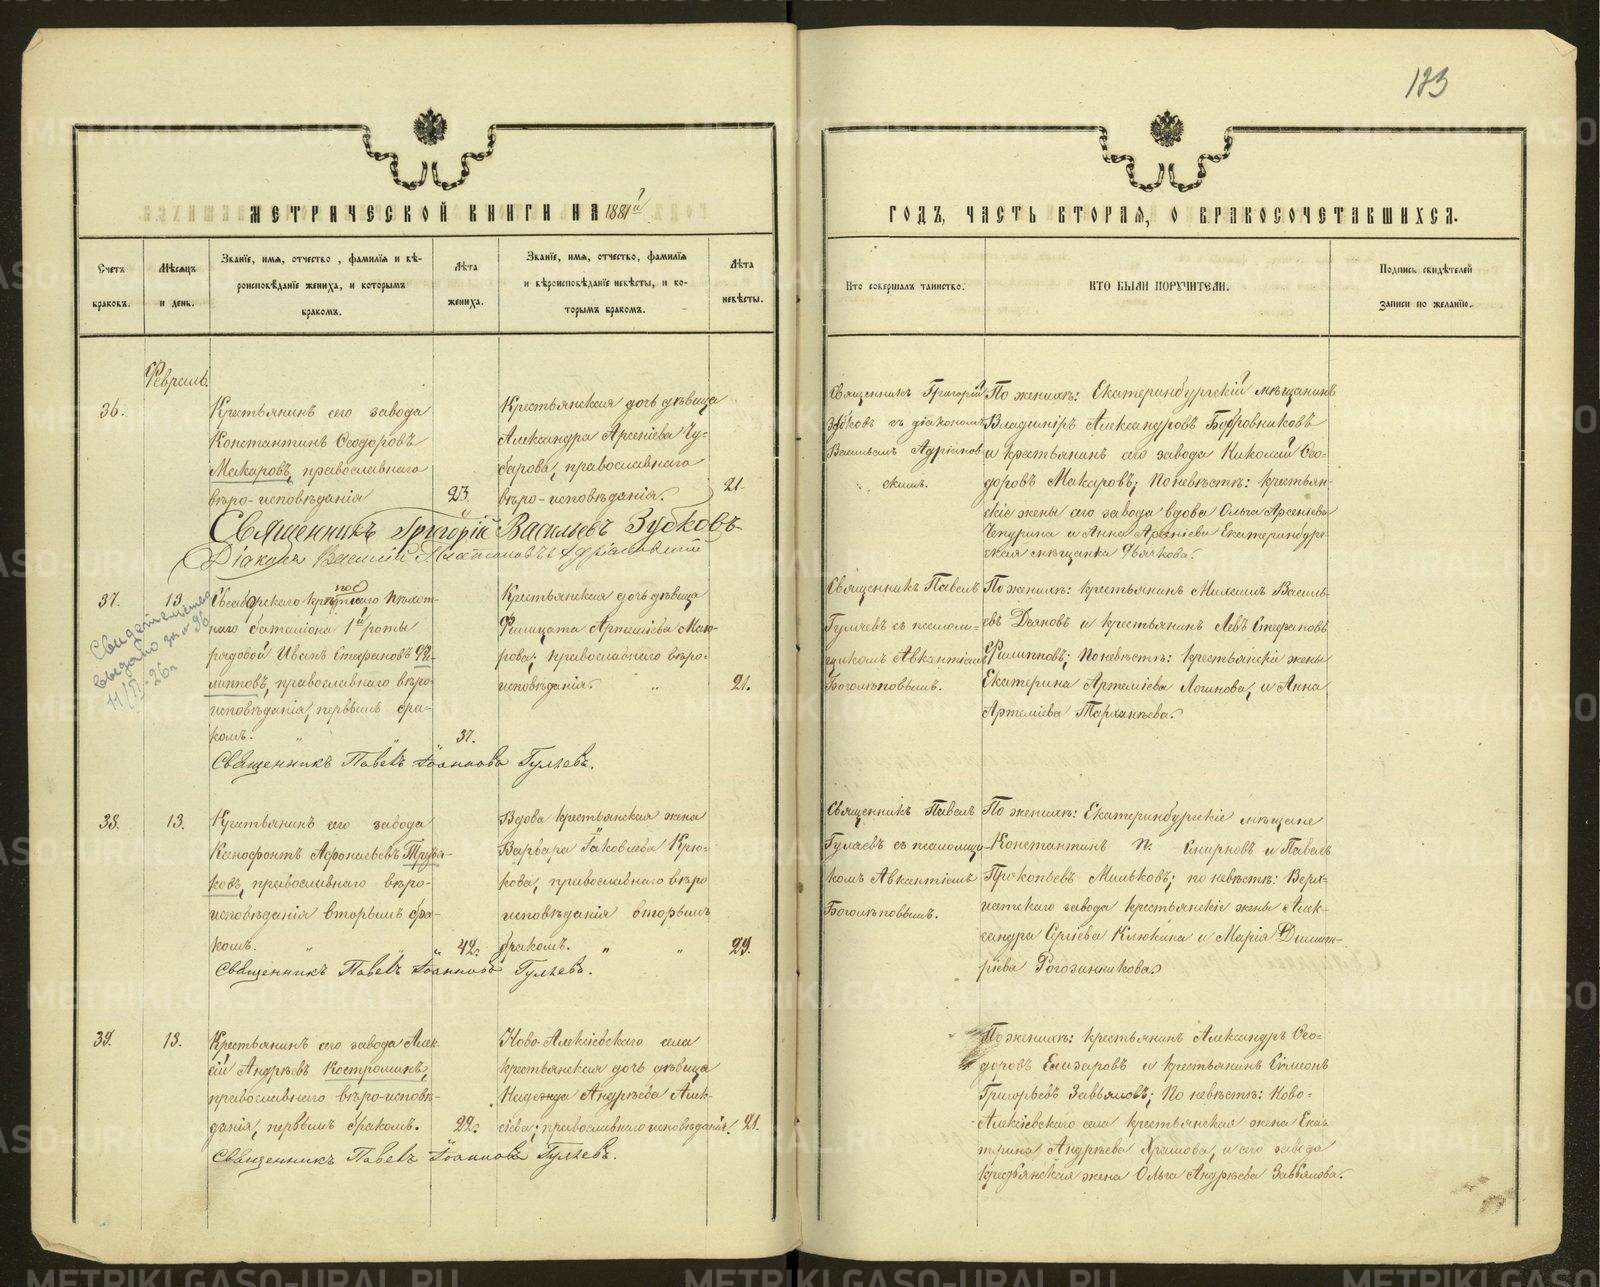 183
МЕТРИЧЕСКОЙ КНИГИ НА 1881й
ГОДЪ, ЧАСТЬ ВТОРАЯ, О БРАКОСОЧЕТАВШИХСЯ.
Счетъ браковъ.
Мѣсяцъ и день.
Званіе, имя, отчество, фамилія и вѣ-
роисповѣданіе жениха, и которымъ
бракомъ.
Лѣта
жениха.
Званіе, имя, отчество, фамилія
и вѣроисповѣданіе невѣсты, и ко-
торымъ бракомъ.
Лѣта
невѣсты.
Кто совершалъ таинство.
КТО БЫЛИ ПОРУЧИТЕЛИ.
Подпись свидѣтелей
записи по желанію.
Февраль
36.
Крестьянинъ сего завода
Константинъ Ѳеодоровъ
Макаровъ, православнаго
вѣро-исповѣданія
23.
Крестьянская дочь дѣвица
Александра Арсеніева Чу-
барова, православнаго
вѣро-исповѣданія.
21.
Священникъ Григорій
Зубковъ съ діакономъ
Васильемъ Адріанов-
скимъ.
По женихѣ: Екатеринбургскій мѣщанинъ
Владиміръ Александровъ Бобровниковъ
и крестьянинъ сего завода Николай Ѳео-
доровъ Макаровъ; По невѣстѣ: крестьян-
скіе жены сего завода вдова Ольга Арсеніева
Чепурина и Анна Арсеніева Екатеринбург-
ская мѣщанка
Священникъ Григорій Васильевъ Зубковъ
Діаконъ Василій Адріановскій
37.
13.
Свидѣтельство
выдано за № 96
11/II-26г
пѣхот-
наго баталіона 1й роты
рядовой Иванъ Стефановъ Фи-
липповъ, православнаго вѣро-
исповѣданія, первымъ бра-
комъ.
37.
Крестьянская дочь дѣвица
Фелицата Артеміева Мака-
рова; православнаго вѣро-
исповѣданія.
21.
Священникъ Павелъ
Гуляевъ съ псалом-
щикомъ Авксентіемъ
Боголѣповымъ.
По женихѣ: крестьянинъ Михаилъ Василь-
евъ Деяновъ и крестьянинъ Левъ Стефановъ
Филипповъ; По невѣстѣ: крестьянскіе жены
Екатерина Артеміева Логинова, и Анна
Артеміева
Священникъ Павелъ Іоанновъ Гуляевъ.
38.
13.
Крестьянинъ сего завода
Ксенофонтъ Афонасьевъ Труба-
ковъ, православнаго вѣро-
исповѣданія вторымъ бра-
комъ.
42.
Вдова крестьянская жена
Варвара Іаковлева Крю-
кова, православнаго вѣро
исповѣданія вторымъ
бракомъ.
29.
Священникъ Павелъ
Гуляевъ съ псаломщи-
комъ Авксентіемъ
Боголѣповымъ.
По женихѣ: Екатеринбургскіе мѣщане
Константинъ П. Смирновъ и Павелъ
Прокопьевъ Мальковъ; по невѣстѣ: Верх-
исетскаго завода крестьянскіе жены Алек-
сандра Сергіева Клюкина и Марія Димит-
ріева Рогозинникова.
Священникъ Павелъ Іоанновъ Гуляевъ.
39.
13.
Крестьянинъ сего завода Алек-
сій Андреевъ Костроминъ,
православнаго вѣро-исповѣ-
данія, первымъ бракомъ.
22.
Ново-Алексіевскаго села
крестьянская дочь дѣвица
Надежда Андрѣева Алек-
сіева; православнаго исповѣданія.
21.
По женихѣ: крестьянинъ Александръ Ѳео-
доровъ Елизаровъ и крестьянинъ Симеонъ
Григорьевъ Завьяловъ; По невѣстѣ: Ново-
Алексіевскаго села крестьянская жена Ека-
терина Андрѣева Храмова, и сего завода
крестьянская жена Ольга Андрѣева Завьялова.
Священникъ Павелъ Іоанновъ Гуляевъ.
METRIKI.GASO-URAL.RU